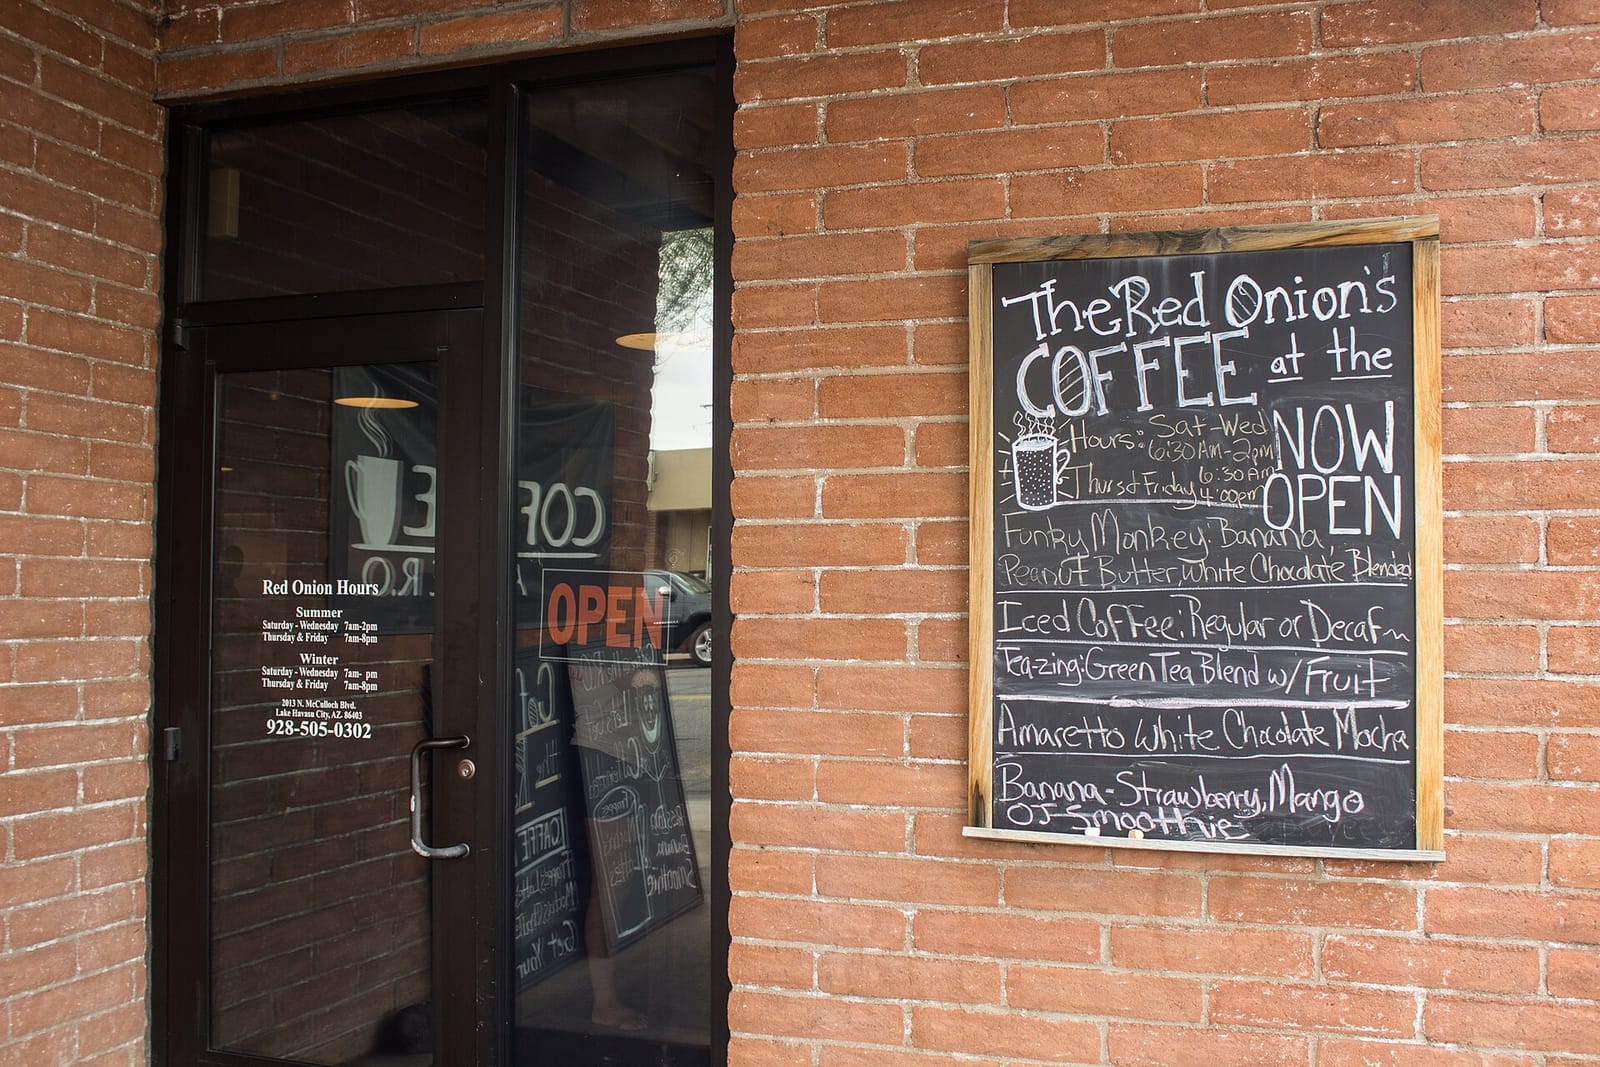 Red Onion Hours
Summer
Saturday - Wednesday 7am-2pm
Thursday & Friday 7am-8pm
Winter
Saturday - Wednesday 7am- pm
Thursday & Friday 7am-8pm
2013 N. McCulloch Blvd.
Lake Havasu City, AZ. 86403
928-505-0302
COFFEE
OPEN
Get Your
The Red Onion's
COFFEE at the
NOW
OPEN
Hours: Sat-Wed
6:30 AM-2pm
6:30 AM
Thurs & Friday 4:00pm
Funky Monkey: Banana,
Peanut Butter, White Chocolate Blended
Iced Coffee: Regular or Decaf
Tea-zing: Green Tea Blend w/ Fruit
Amaretto White Chocolate Mocha
Banana-Strawberry, Mango
OJ Smoothie